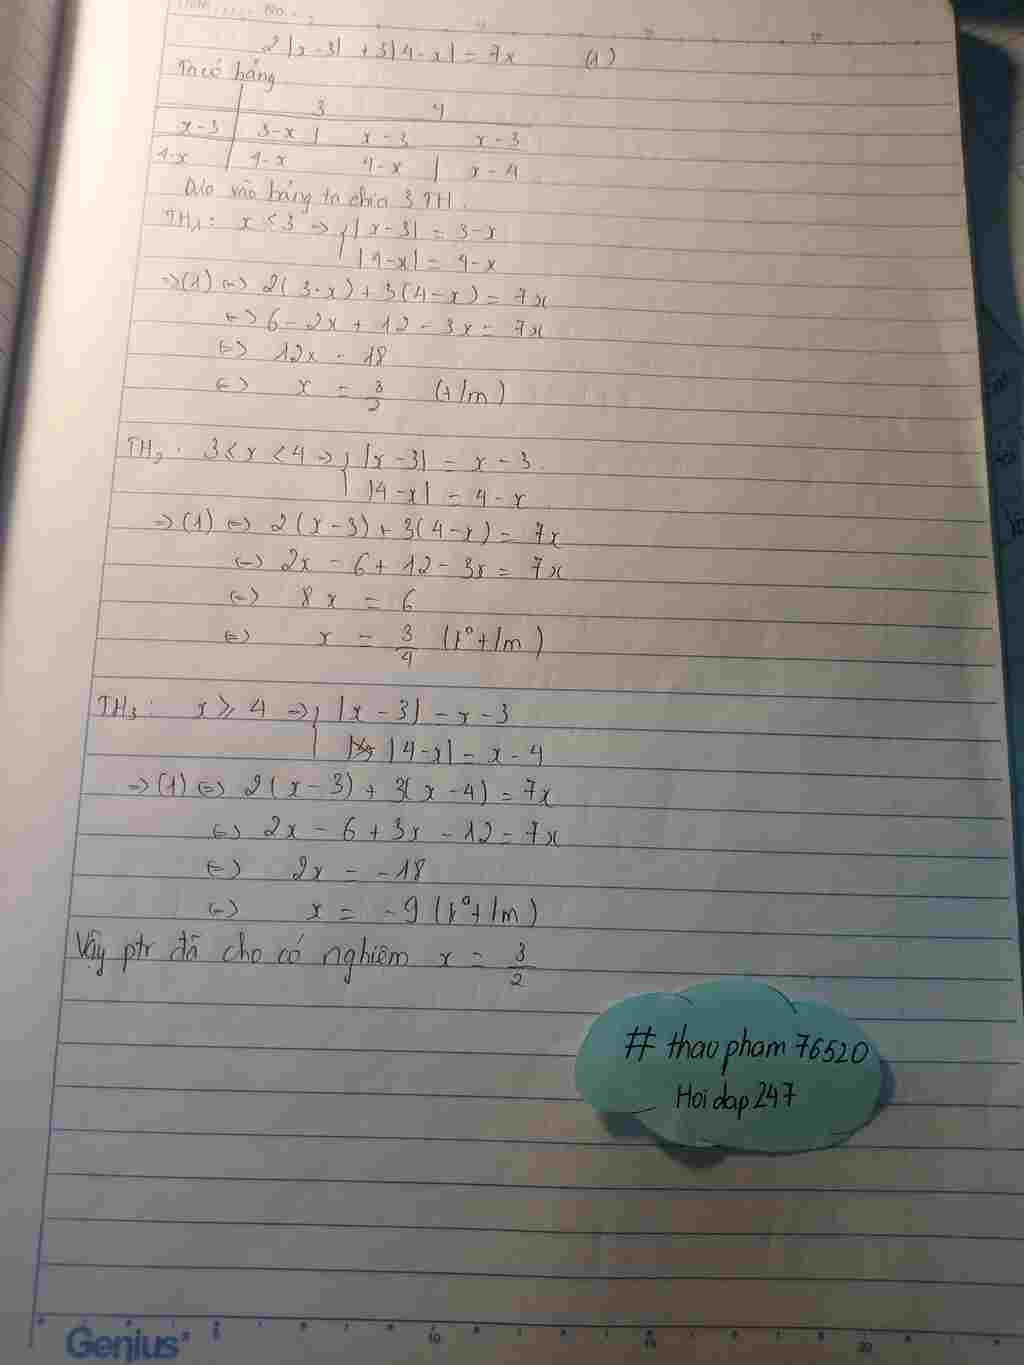 No.
2|x-3| + 3|4-x| = 7x (1)
Ta có bảng
3 4
x-3 3-x | x-3 x-3
4-x 4-x 4-x | x-4
Dựa vào bảng ta chia 3 TH.
TH1: x < 3 => |x-3| = 3-x
|4-x| = 4-x
=> (1) <=> 2(3-x) + 3(4-x) = 7x
<=> 6 - 2x + 12 - 3x = 7x
<=> 12x = 18
<=> x = 3/2 (t/m)
TH2. 3 < x < 4 => |x-3| = x-3.
|4-x| = 4-x
=> (1) <=> 2(x-3) + 3(4-x) = 7x
<=> 2x - 6 + 12 - 3x = 7x
<=> 8x = 6
<=> x = 3/4 (k° t/m)
TH3: x ≥ 4 => |x-3| = x-3
|4-x| = x-4
=> (1) <=> 2(x-3) + 3(x-4) = 7x
<=> 2x - 6 + 3x - 12 = 7x
<=> 2x = -18
<=> x = -9 (k° t/m)
Vậy ptr đã cho có nghiệm x = 3/2
# thaopham76520
Hoidap247
Genius
5 10 15 20